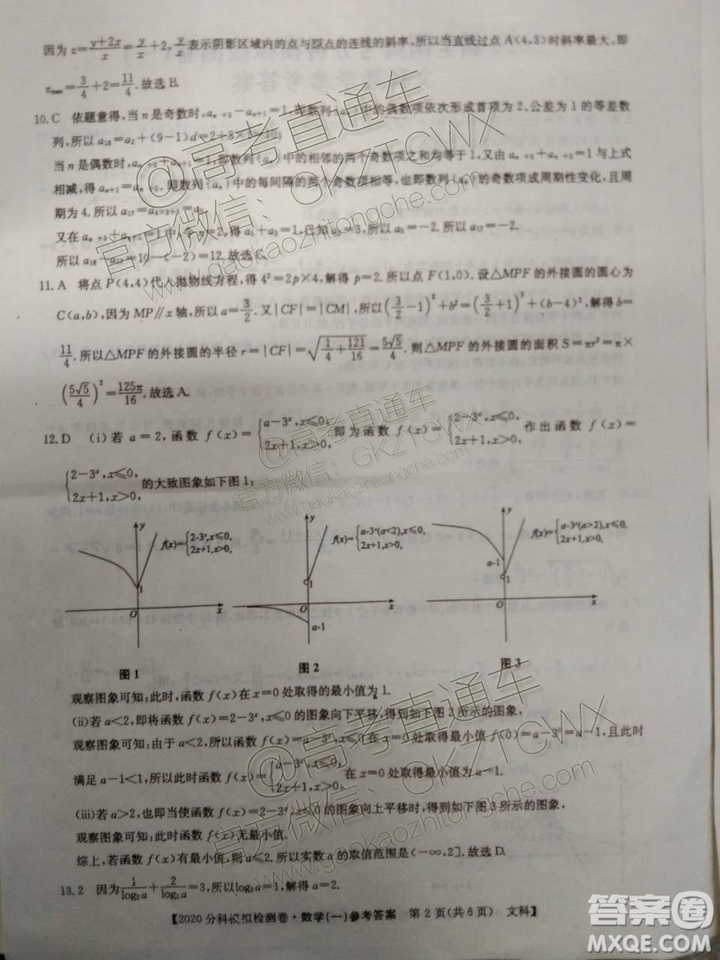 因为z=\frac{y+2x}{x}=\frac{y}{x}+2,\frac{y}{x}表示阴影区域内的点与原点的连线的斜率,所以当直线过点A(4,3)时斜率最大,即
z_{max}=\frac{3}{4}+2=\frac{11}{4}.故选B.
10.C 依题意得,当n是奇数时,a_{n+2}-a_{n+1}=1,即数列{a_n}中的偶数项依次形成首项为2、公差为1的等差数
列,所以a_{18}=a_2+(9-1)d=2+8×1=10;
当n是偶数时,a_{n+2}+a_{n+1}=1,即数列{a_n}中的相邻的两个奇数项之和均等于1,又由a_{n+2}+a_{n+1}=1与上式
相减,得a_{n+3}=a_{n-1},即数列{a_n}中的每间隔的两个奇数项相等,也即数列{a_n}的奇数项成周期性变化,且周
期为4.所以a_{17}=
又在a_{n+2}+a_{n+1}=1中,令n=2,得a_5+a_3=1,已知a_3=3,所以a_5=-2.所以a_{17}=-2.
所以a_{18}-a_{17}=10-(-2)=12.故选C.
11.A 将点P(4,4)代入抛物线方程,得4²=2p×4,解得p=2.所以点F(1,0).设△MPF的外接圆的圆心为
C(a,b),因为MP∥x轴,所以a=\frac{3}{2}.又|CF|=|CM|,所以(\frac{3}{2}-1)²+b²=(\frac{3}{2}+1)²+(b-4)²,解得b=
\frac{11}{4}.所以△MPF的外接圆的半径r=|CF|=\sqrt{\frac{1}{4}+\frac{121}{16}}=\frac{5\sqrt{5}}{4}.则△MPF的外接圆的面积S=πr²=π×
(\frac{5\sqrt{5}}{4})²=\frac{125π}{16}.故选A.
12.D (i)若a=2,函数f(x)={a-3^x,x≤0, 2x+1,x>0, 即为函数f(x)={2-3^x,x≤0, 2x+1,x>0, 作出函数f(x)=
{2-3^x,x≤0, 2x+1,x>0, 的大致图象如下图1:
y f(x)={2-3^x,x≤0, 2x+1,x>0, 1 O x
y f(x)={a-3^x(a<2),x≤0, 2x+1,x>0, 1 O x a-1
y f(x)={a-3^x(a>2),x≤0, 2x+1,x>0, a-1 1 O x
图1 图2 图3
观察图象可知:此时,函数f(x)在x=0处取得的最小值为1.
(ii)若a<2,即将函数f(x)=2-3^x,x≤0的图象向下平移,得到如下图2所示的图象,
观察图象可知:由于a<2,所以函数f(x)=a-3^x,x≤0在x=0处取得最小值f(0)=a-3^0=a-1,且此时
满足a-1<1,所以此时函数f(x)={a-3^x,x≤0, 2x+1,x>0, 在x=0处取得最小值为a-1.
(iii)若a>2,也即当使函数f(x)=a-3^x,x≤0的图象向上平移时,得到如下图3所示的图象,
观察图象可知:此时函数f(x)无最小值.
综上,若函数f(x)有最小值,则a≤2.所以实数a的取值范围是(-∞,2].故选D.
13.2 因为\frac{1}{log_2a}+\frac{2}{log_2a}=3,所以log_2a=1.解得a=2.
【2020分科模拟检测卷·数学(一)参考答案 第2页(共6页) 文科】
@高考直通车
官方微信:GKZTCWX
www.gaokaozhitongche.com
@高考直通车
官方微信:GKZTCWX
www.gaokaozhitongche.com
@高考直通车
官方微信:GKZTCWX
www.gaokaozhitongche.com
答案圈
MXQE.COM